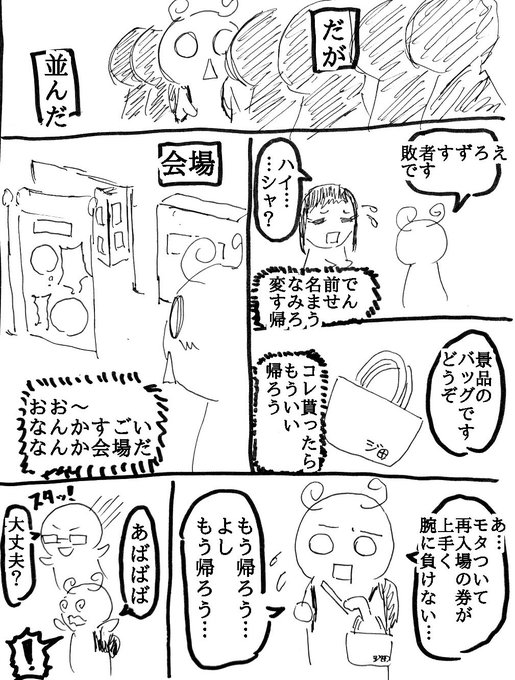 だが
並んだ
敗者すずろえ
です
ハイ…
…シャ?
変な名前で
すみません
帰ろう
会場
おお~
なんかすごい
なんか会場だ
景品の
バッグです
どうぞ
コレ貰ったら
もういい
帰ろう
あ…
モタついて
再入場の券が
上手く
腕に負けない…
もう帰ろう…
よし
もう帰ろう…
あばばば
スタッ!
大丈夫?
!